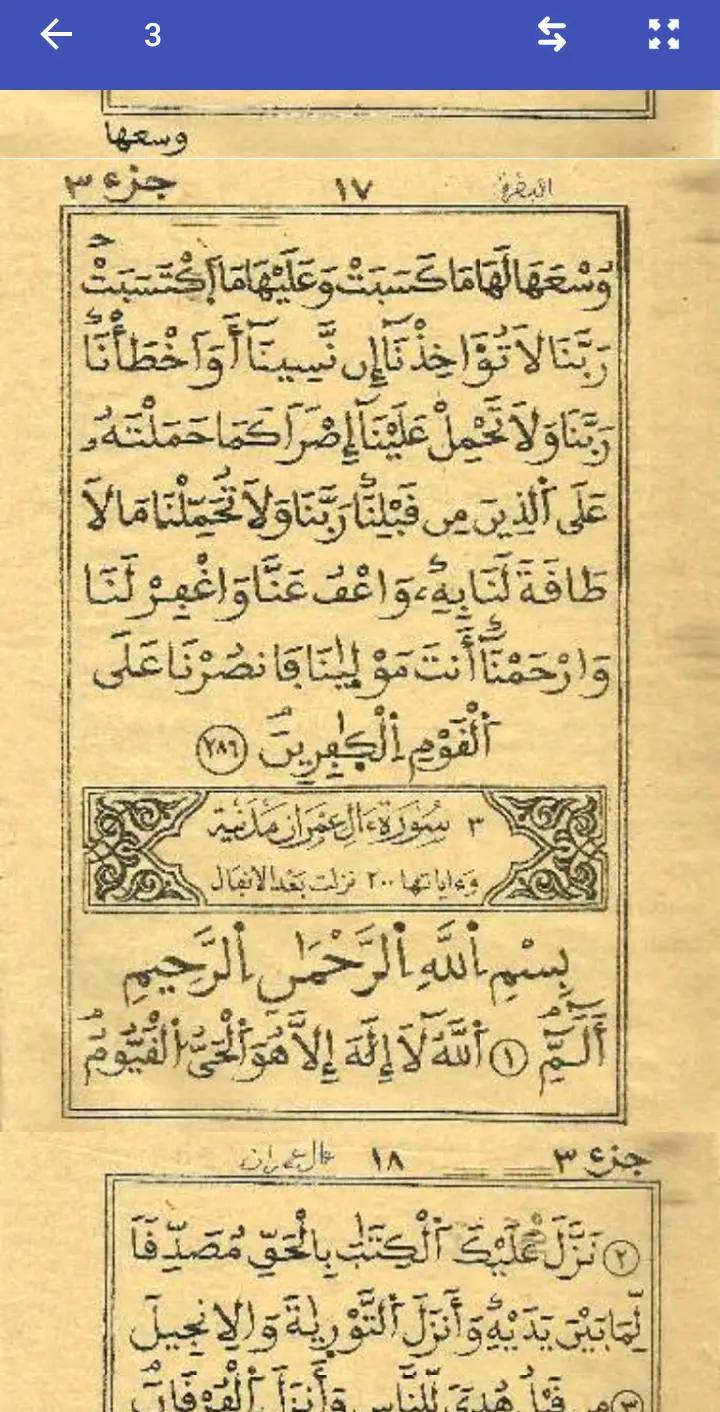 3
وسعها
جزء ٣ ١٧ البقرة
وُسْعَهَا لَهَا مَا كَسَبَتْ وَعَلَيْهَا مَا ٱكْتَسَبَتْ
رَبَّنَا لَا تُؤَاخِذْنَآ إِن نَّسِينَآ أَوَ اَخْطَأْنَا
رَبَّنَا وَلَا تَحْمِلْ عَلَيْنَآ إِصْرًا كَمَا حَمَلْتَهُۥ
عَلَى ٱلذِينَ مِن قَبْلِنَا رَبَّنَا وَلَا تُحَمِّلْنَا مَا لَا
طَاقَةَ لَنَا بِهِۦ وَاعْفُ عَنَّا وَاغْفِرْ لَنَا
وَارْحَمْنَآ أَنتَ مَوْلَىٰنَا فَانصُرْنَا عَلَى
ٱلْقَوْمِ ٱلْكَٰفِرِينَ ٢٨٦
٣ سُورَةُ ءَالِ عِمْرَانَ مَدَنِيَّة
وءاياتها ٢٠٠ نزلت بعد الانفال
بِسْمِ ٱللَّهِ ٱلرَّحْمَٰنِ ٱلرَّحِيمِ
أَلَٓمِّٓ ١ ٱللَّهُ لَآ إِلَٰهَ إِلَّا هُوَ ٱلْحَيُّ ٱلْقَيُّومُ
جزء ٣ ١٨ ءال عمران
٢ نَزَّلَ عَلَيْكَ ٱلْكِتَٰبَ بِالْحَقِّ مُصَدِّقًا
لِّمَا بَيْنَ يَدَيْهِ وَأَنزَلَ ٱلتَّوْرَىٰةَ وَالِانجِيلَ
٣ مِن قَبْلُ هُدًى لِّلنَّاسِ وَأَنزَلَ ٱلْفُرْقَانَ